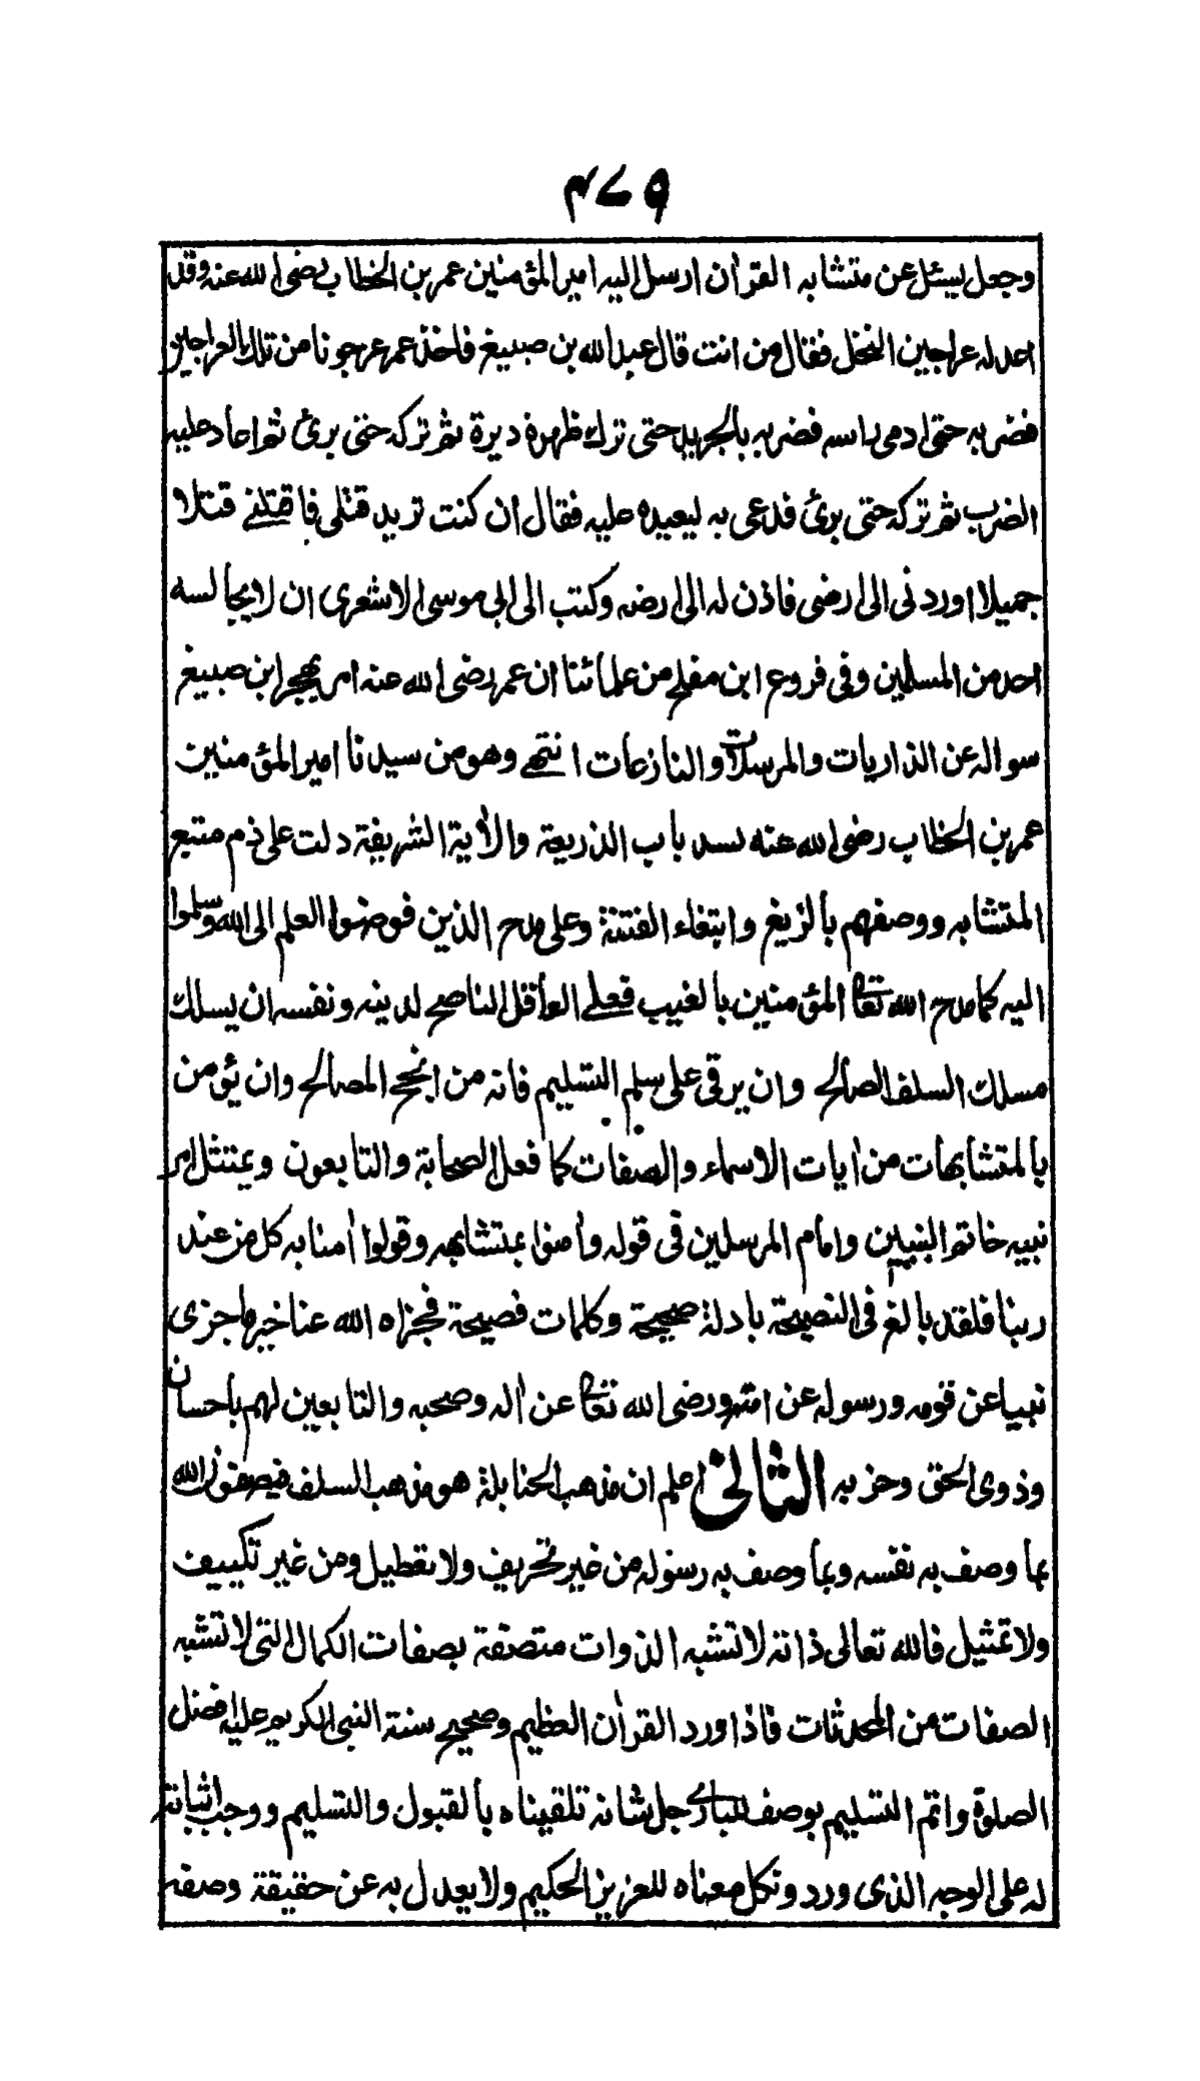 ٤٧٩
وجعل يسئل عن متشابه القرأن ارسل اليه امير المؤمنين عمر بن الخطاب رضى الله عنه وقد
اعد له عراجين النخل فقال من انت قال عبد الله بن صبيغ فاخذ عمر عرجونا من تلك العراجين
فضربه حتى ادمى راسه فضربه بالجريد حتى ترك ظهره دبرة ثم تركه حتى برئ ثم اعاد عليه
الضرب ثم تركه حتى برئ فدعى به ليعيده عليه فقال ان كنت تريد قتلى فاقتلنے قتلا
جميلا اوردنى الى ارضى فاذن له الى ارضه وكتب الى ابى موسى الاشعرى ان لا يجالسه
احد من المسلمين وفى فروع ابن مفلح من علمائنا ان عمر رضى الله عنه امر بهجر ابن صبيغ
سواله عن الذاريات والمرسلات والنازعات انتهے وهو من سيدنا امير المؤمنين
عمر بن الخطاب رضى الله عنه لسد باب الذريعة والأية الشريفة دلت على ذم متبع
المتشابه ووصفهم بالزيغ وابتغاء الفتنة وعلى مدح الذين فوضوا العلم الى الله وسلموا
اليه كما مدح الله تعالے المؤمنين بالغيب فعلے العاقل الناصح لدينه ونفسه ان يسلك
مسلك السلف الصالح وان يرقى على سلم التسليم فانه من انجح المصالح وان يؤمن
بالمتشابهات من أيات الاسماء والصفات كما فعل الصحابة والتابعون ويمتثل امر
نبيه خاتم النبيين وامام المرسلين فى قوله وأمنوا بمتشابهه وقولوا أمنا به كل من عند
ربنا فلقد بالغ فى النصيحة بادلة صحيحة وكلمات فصيحة فجزاه الله عنا خير ما جزى
نبيا عن قومه ورسوله عن امته ورضى الله تعالے عن أله وصحبه والتابعين لهم باحسان
وذوى الحق وحزبه الثانى اعلم ان مذهب الحنابلة هو مذهب السلف فيصفون الله
بما وصف به نفسه وبما وصف به رسوله من غير تحريف ولا تعطيل ومن غير تكييف
ولا تمثيل فالله تعالى ذاته لا تشبه الذوات متصفة بصفات الكمال التى لا تشبه
الصفات من المحدثات فاذا ورد القرأن العظيم وصحيح سنة النبى الكريم عليه افضل
الصلوة واتم التسليم بوصف للبارے جل شانه تلقيناه بالقبول والتسليم ووجب اثباته
له على الوجه الذى ورد ونكل معناه للعزيز الحكيم ولا يعدل به عن حقيقة وصفه